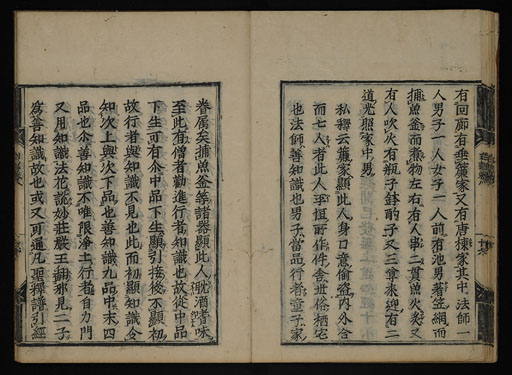 有回廊有垂簾家又有唐棟家其中法師一
人男子一人女子一人前有池男著笠網而
捕魚釜而煮物左右有人串二貫魚火炙又
有人吹火有瓶子針酌子又三章來迎有二
道光照家中男
私釋云簾家顯此人身口意偷盜内外合
而七人者此人平恒所作作舍世俗栖宅
也法師善知識也男子當品行者童子家
眷屬矣捕魚釜等諸器顯此人耽酒嗜味
至此有僧者勸進行者知識也故從中品
下生可有今中品下生顯引接後不顯初
故行者與知識不見也此而初顯知識合
知次上與次下品也善知識九品中末四
品也今善知識不唯限淨土行者自力門
又用知識法花說妙莊嚴王緣那見二子
為善知識故也或又可通凡聖釋譜引經